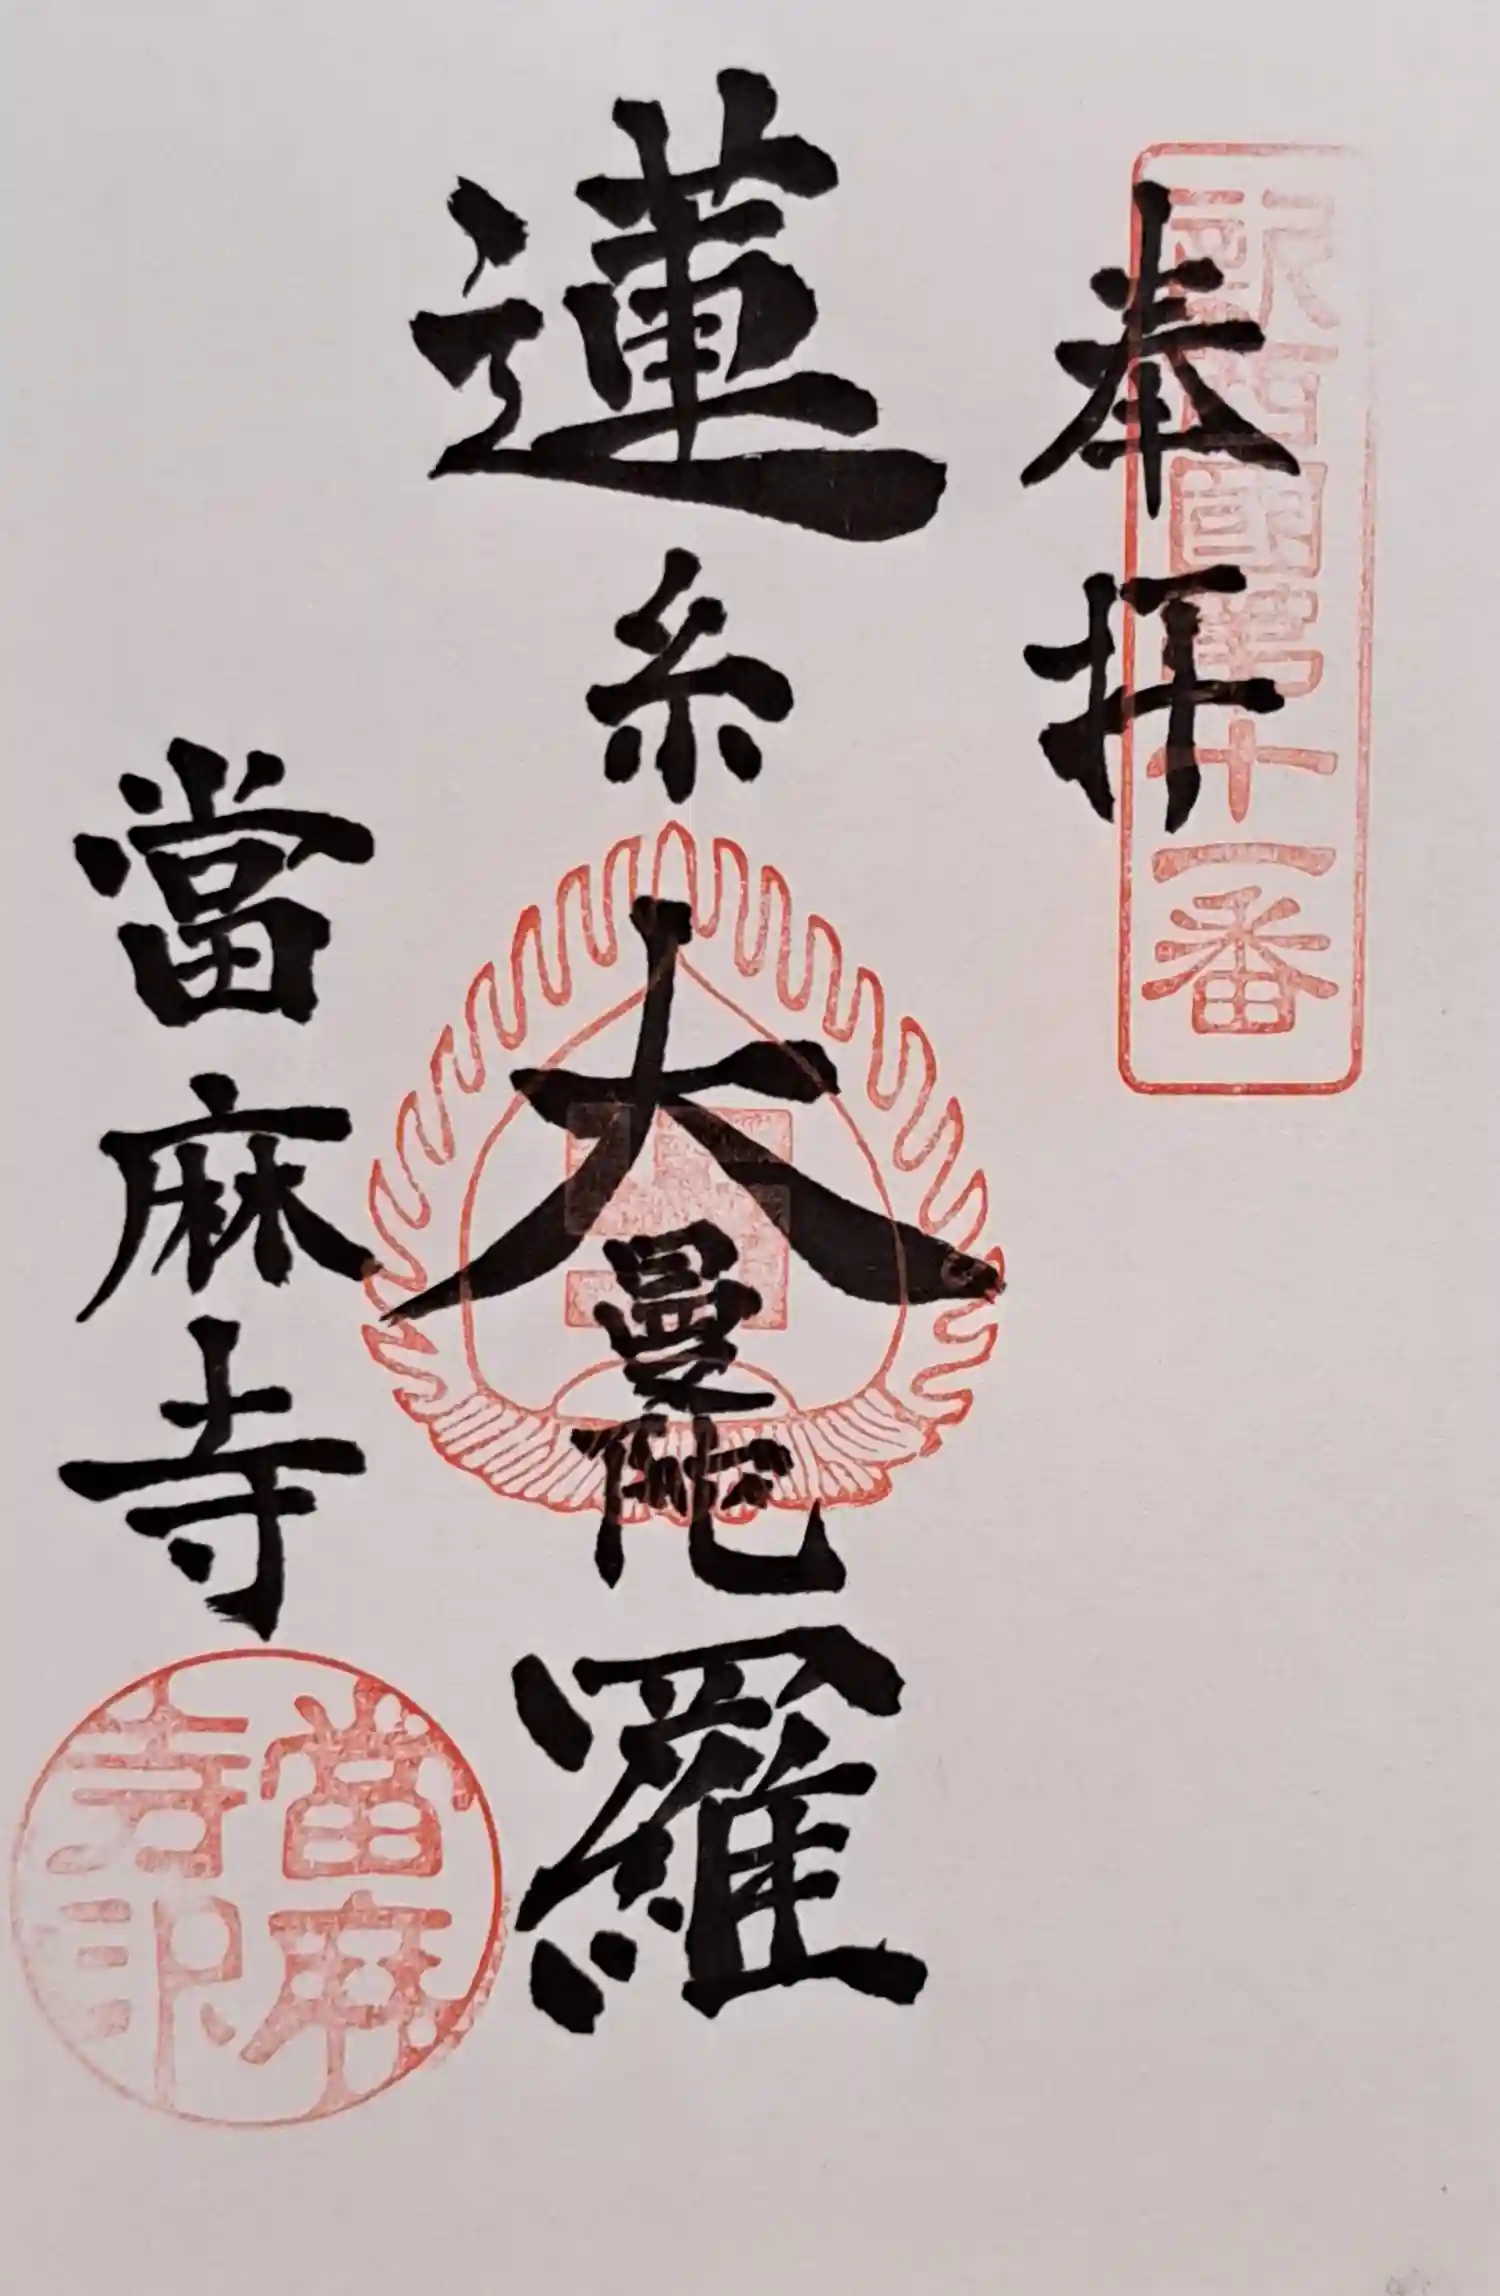 新西國第十一番
奉拝
蓮糸大曼陀羅
當麻寺
當麻寺印